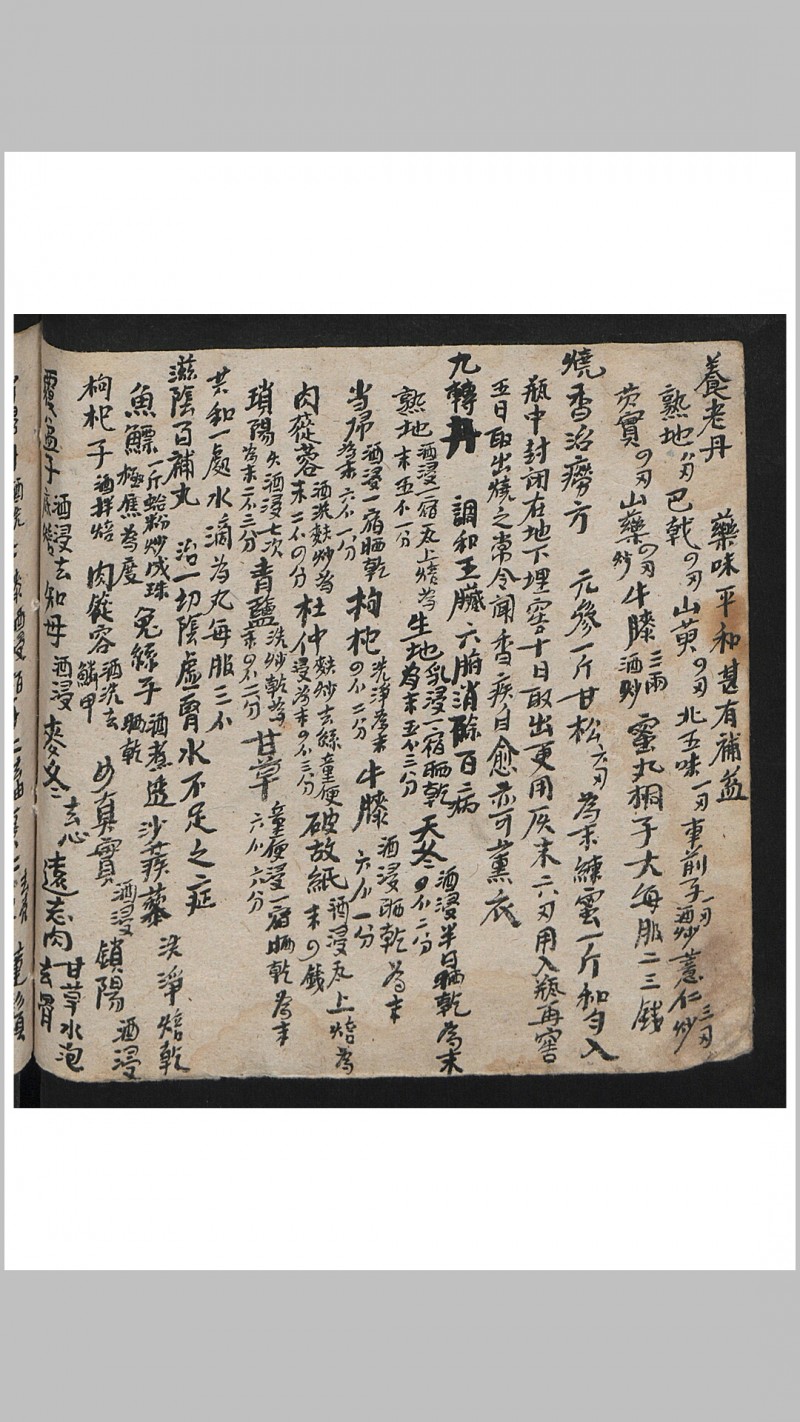 養老丹　藥味平和甚有補益
熟地八刃巴戟の刃山萸の刃北五味一刃車前子一刃酒炒薏仁炒三刃
芡實の刃山藥の刃炒牛膝三兩酒炒蜜丸桐子大每服二三錢
燒香治癆方　元參一斤甘松六刃為末練蜜一斤和勻入
瓶中封閉在地下埋窨十日取出更用灰末六刃用入瓶再窨
五日取出燒之常令聞香疾自愈亦可薰衣
九轉丹　調和五臟六腑消除百病
熟地酒浸一宿瓦上焙為末五不一分生地乳浸一宿晒乾為末五不三分天冬酒浸半日晒乾為末の不二分
当帰酒浸一宿晒乾為末六不一分枸杞洗淨為末の不二分牛膝酒浸晒乾為末六不一分
肉蓯蓉酒洗麩炒為末二不の分杜仲麸炒去絲童便浸為末の不三分破故紙酒浸瓦上焙為末の錢
瑣陽火酒浸七次為末二不三分青鹽洗炒乾為末の不二分甘草童便浸一宿晒乾為末六不六分
共和一處水滴為丸每服三不
滋陰百補丸　治一切陰虛腎水不足之症
魚鰾一斤蛤粉炒成珠極焦為度兔絲子酒煮透晒乾沙蒺藜洗淨焙乾
枸杞子酒拌焙肉蓯容酒洗去鱗甲女真實酒浸鎖陽酒浸
覆盆子知母酒浸麥冬去心遠志肉甘草水泡去骨